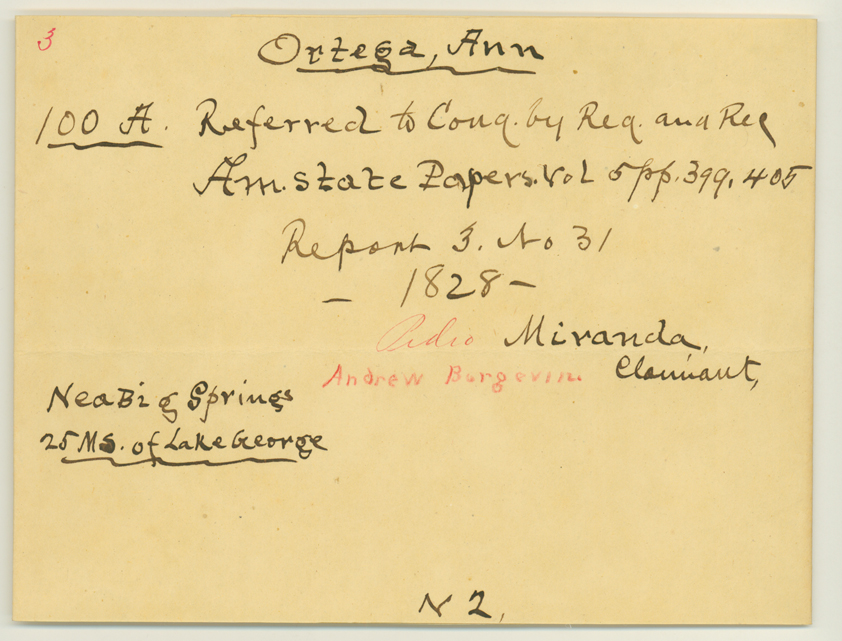 3
Ortega, Ann
100 A. Referred to Cong. by Reg. and Rec
Am. State Papers. Vol 5 pp. 399. 405
Report 3. No 31
- 1828 -
Pedro Miranda,
Andrew Burgevin. Claimant,
Nea Big Springs
25 Ms. of Lake George
N 2,